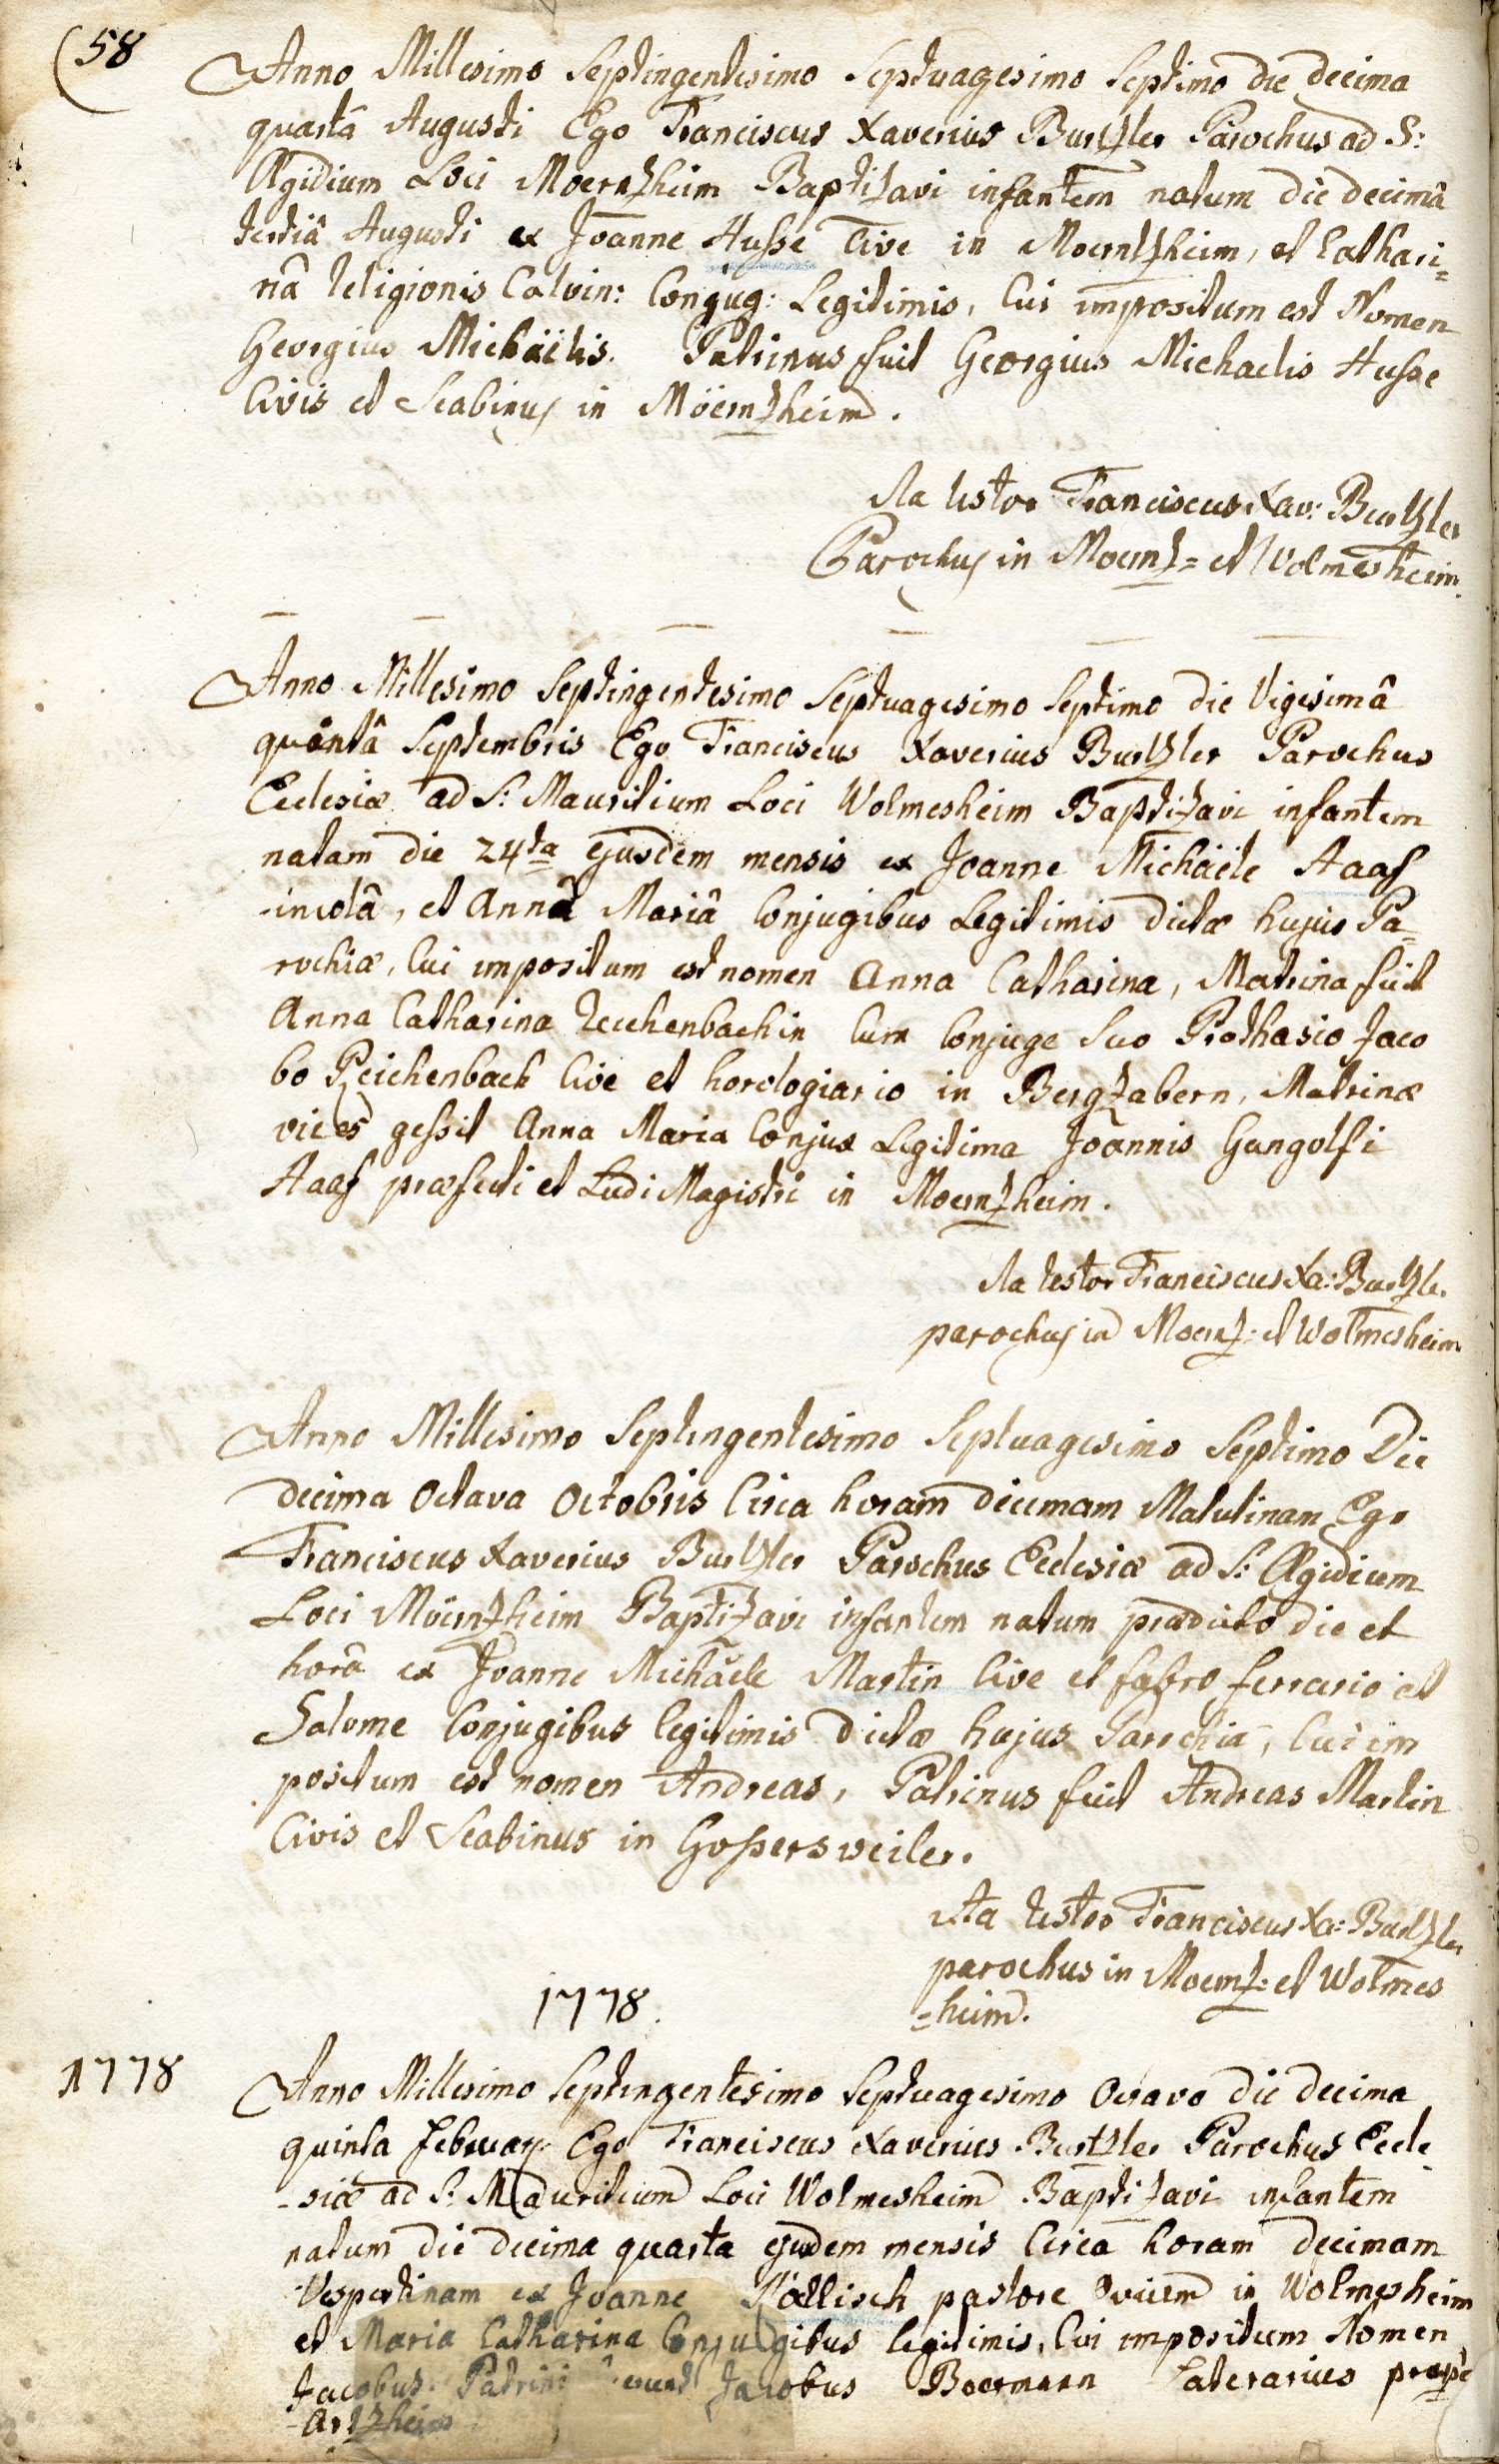 58
Anno Millesimo Septingentesimo Septuagesimo Septimo die decima
quartâ Augusti Ego Franciscus Xaverius Burtzler Parochus ad S:
Ægidium Loci Moerntzheim Baptizavi infantem natum die decimâ
tertiâ Augusti ex Joanne Husse Cive in Moerntzheim, et Cathari=
nâ religionis Calvin: Conjug: Legitimis, Cui impositum est Nomen
Georgius Michäelis. Patrinus fuit Georgius Michaelis Husse
Civis et Scabinus in Möerntzheim.
Ita testor Franciscus Xav: Burtzler
Parochus in Moerntz= et Wolmesheim.
Anno Millesimo Septingentesimo Septuagesimo Septimo die Vigesimâ
quintâ Septembris Ego Franciscus Xaverius Burtzler Parochus
Ecclesiæ ad S: Mauritium Loci Wolmesheim Baptizavi infantem
natam die 24ta ejusdem mensis ex Joanne Michäele Haaf
incolâ, et Annâ Mariâ Conjugibus Legitimis dictæ hujus Pa=
rochiæ, Cui impositum est nomen Anna Catharina, Matrina fuit
Anna Catharina Reichenbachin Cum Conjuge Suo Prothasio Jaco
bo Reichenback Cive et horologiario in Bergzabern, Matrinæ
vices gessit Anna Maria Conjux Legitima Joannis Gangolfi
Haaf præfecti et Ludi Magistri in Moerntzheim.
Ita testor Franciscus Xa: Burtzler
parochus in Moerntz: et Wolmesheim
Anno Millesimo Septingentesimo Septuagesimo Septimo Die
decima Octava Octobris Circa horam decimam Matutinam Ego
Franciscus Xaverius Burtzler Parochus Ecclesiæ ad S: Ægidium
Loci Möerntzheim Baptizavi infantem natum prædicto die et
horâ ex Joanne Michäele Martin Cive et fabro ferrario et
Salome Conjugibus legitimis dictæ hujus Parochiæ, Cui im
positum est nomen Andreas, Patrinus fuit Andreas Martin
Civis et Scabinus in Gossersweiler.
Ita testor Franciscus Xa: Burtzler
parochus in Moerntz: et Wolmes
=heim.
1778.
1778
Anno Millesimo Septingentesimo Septuagesimo Octavo die decima
quinta february Ego Franciscus Xaverius Burtzler Parochus Eccle
-siæ ad S: Mauritium Loci Wolmesheim Baptizavi infantem
natum die decima quarta ejusdem mensis Circa horam decimam
Vespertinam ex Joanne pastore Ovium in Wolmesheim
et Maria Catharina Conjugibus legitimis, Cui impositum Nomen
Jacobus. Patrini erant Jacobus Boermann Laterarius prope
Artzheim